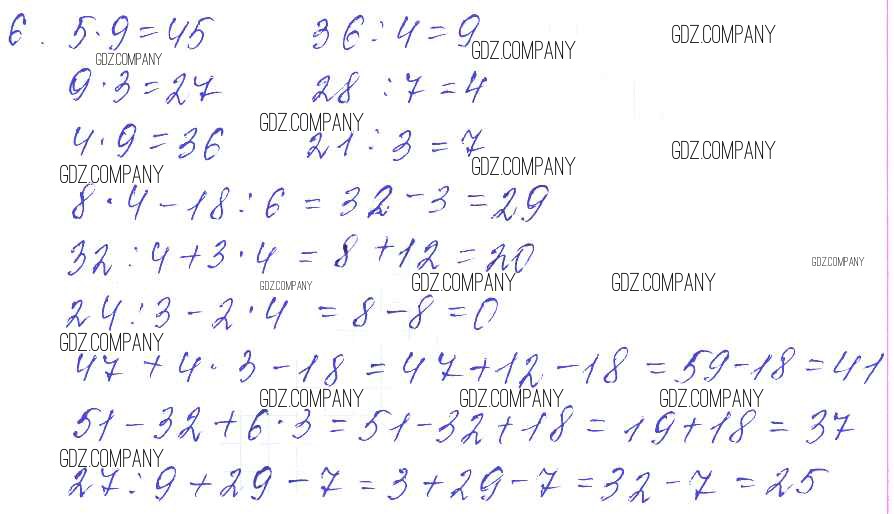 6. 5·9=45 36:4=9 GDZ.COMPANY
GDZ.COMPANY GDZ.COMPANY
9·3=27 28:7=4
GDZ.COMPANY
4·9=36 21:3=7 GDZ.COMPANY
GDZ.COMPANY GDZ.COMPANY
8·4-18:6=32-3=29
32:4+3·4=8+12=20 GDZ.COMPANY
GDZ.COMPANY GDZ.COMPANY GDZ.COMPANY
24:3-2·4=8-8=0
GDZ.COMPANY
47+4·3-18=47+12-18=59-18=41
GDZ.COMPANY GDZ.COMPANY GDZ.COMPANY
51-32+6·3=51-32+18=19+18=37
GDZ.COMPANY
27:9+29-7=3+29-7=32-7=25